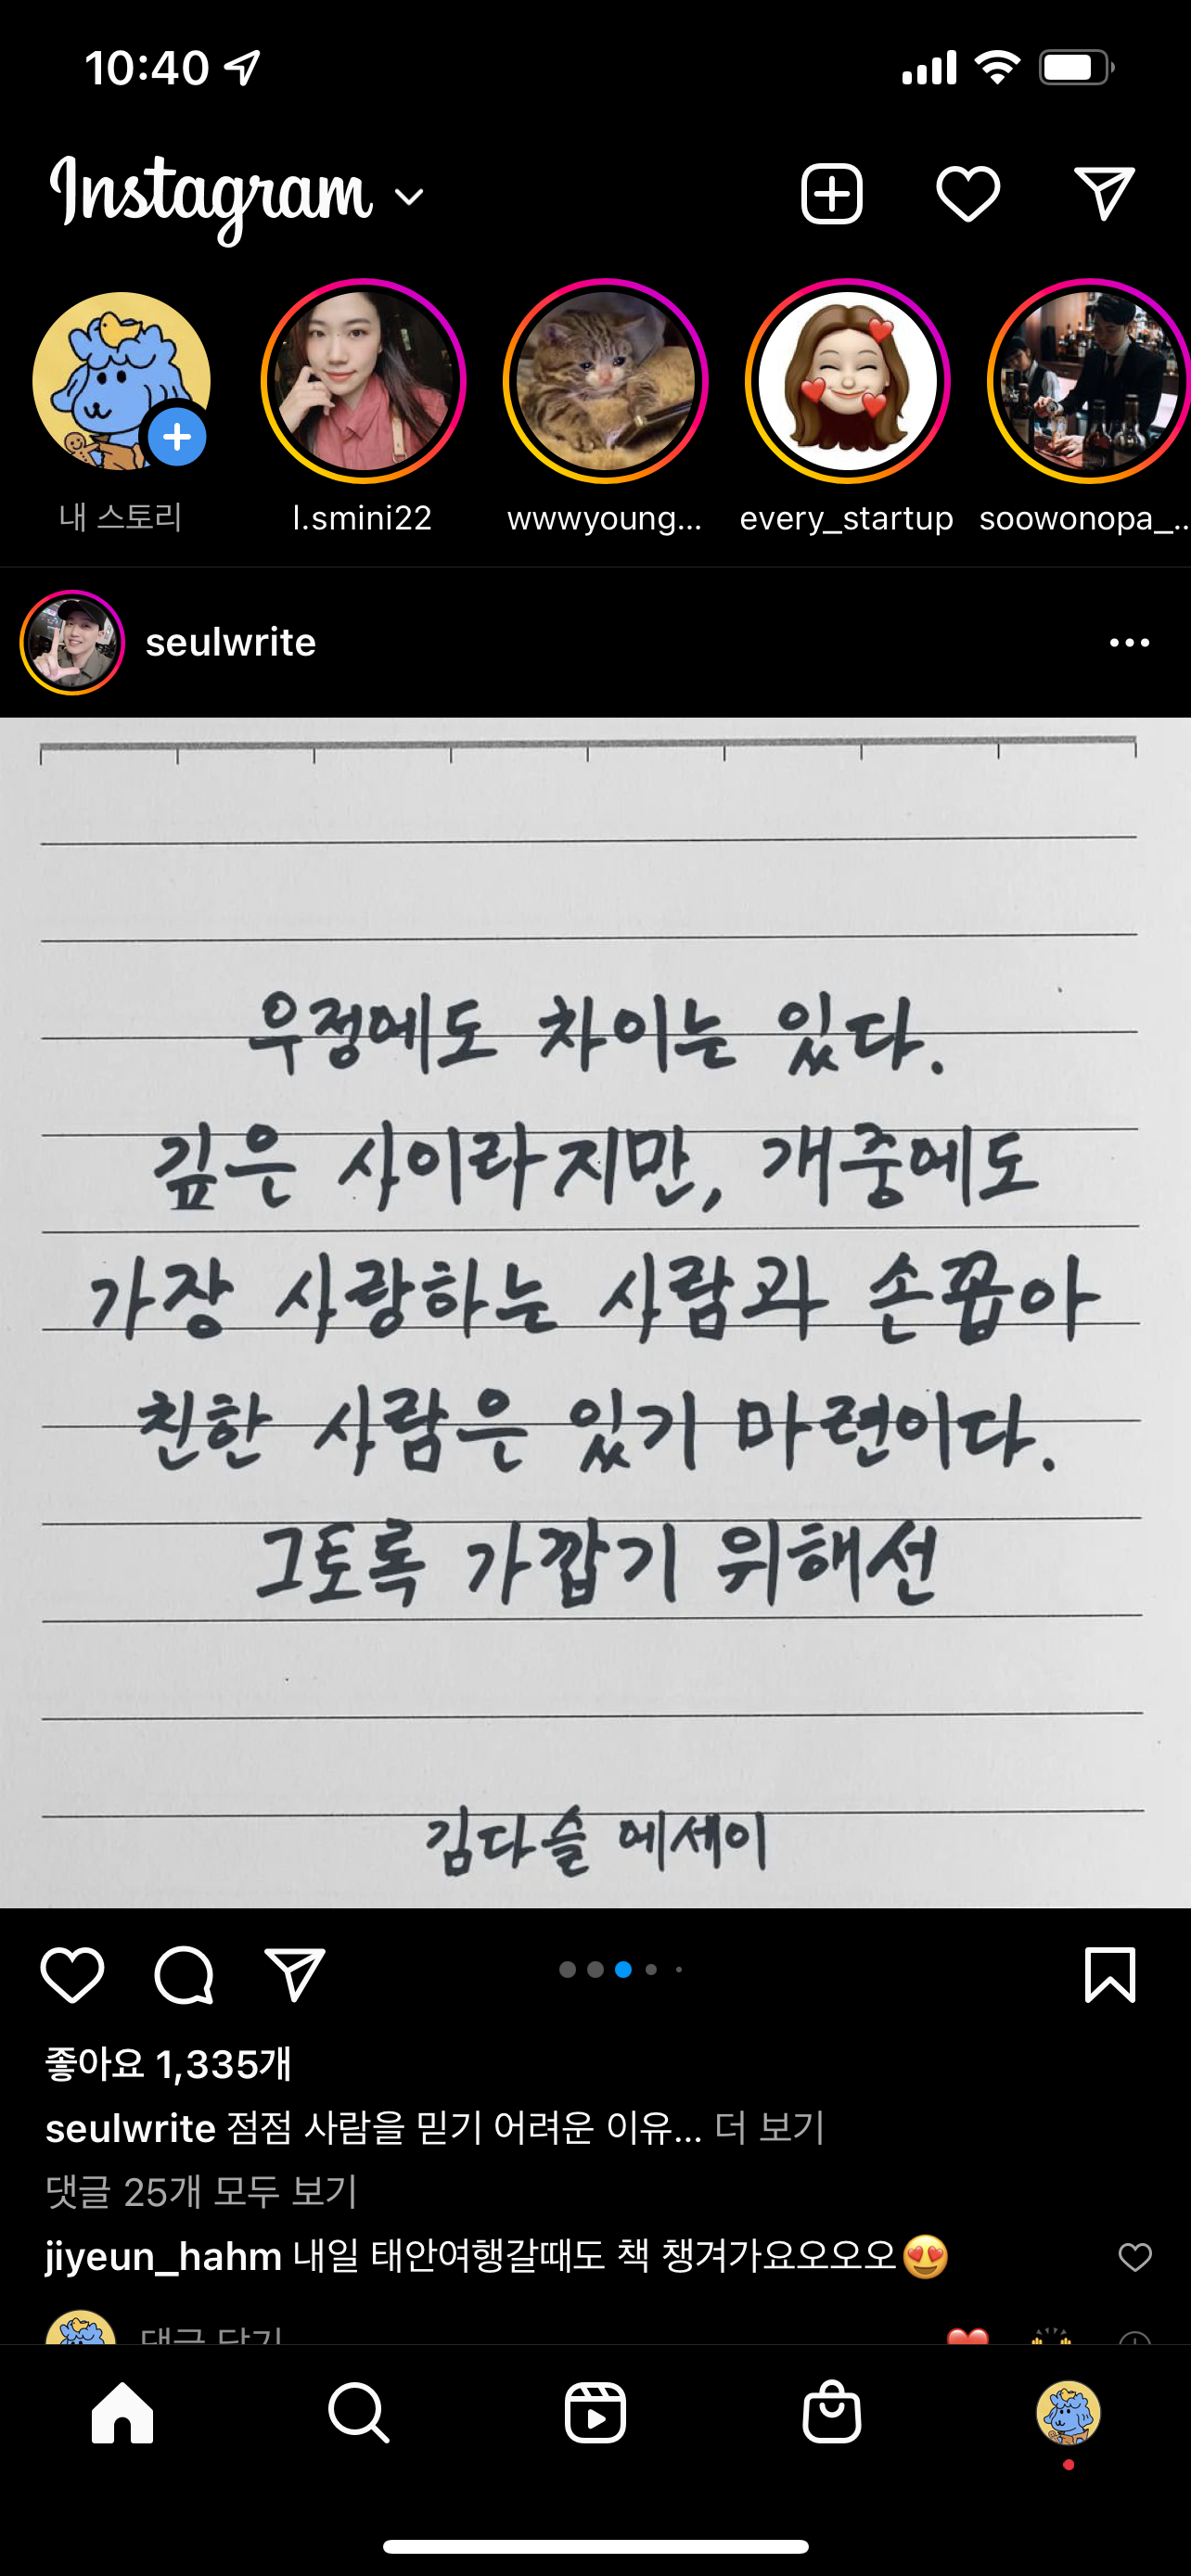 10:40
Instagram
내 스토리
l.smini22
wwwyoung...
every_startup
soowonopa_...
seulwrite
우정에도 차이는 있다.
깊은 사이라지만, 개중에도
가장 사랑하는 사람과 손꼽아
친한 사람은 있기 마련이다.
그토록 가깝기 위해선
김다슬 에세이
좋아요 1,335개
seulwrite 점점 사람을 믿기 어려운 이유... 더 보기
댓글 25개 모두 보기
jiyeun_hahm 내일 태안여행갈때도 책 챙겨가요오오오😍
댓글 달기